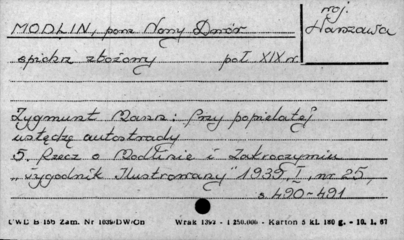 MODLIN, pow Nowy Dwór
woj.
Warszawa
spichrz zbożowy poł XIX w.
Zygmunt Mann: Przy popielatej
wstędze autostrady
5. Rzecz o Modlinie i Zakroczymiu
„Tygodnik Ilustrowany" 1939, I, nr 25,
s. 490-491
CWD B 156 Zam. Nr 1039/DW/Cn Wrak 1393 - 1 250.000 - Karton 5 kl. 180 g. - 10. 1. 67